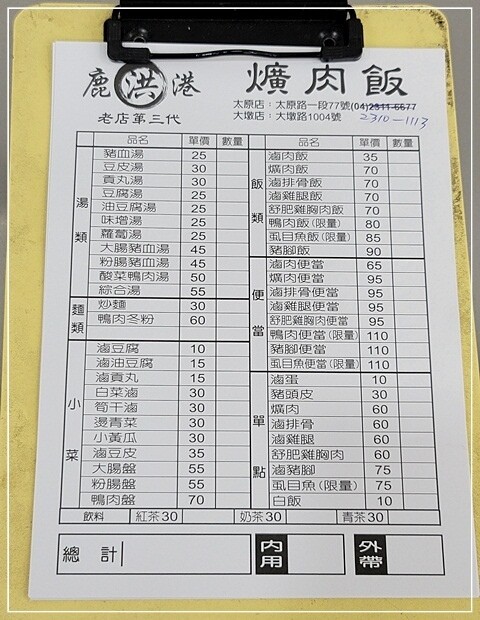 鹿洪港 爌肉飯
老店第三代
太原店：太原路一段77號(04)2311-6677
大墩店：大墩路1004號 2310-1113
品名 單價 數量 品名 單價 數量
湯類
豬血湯 25
豆皮湯 30
貢丸湯 30
豆腐湯 25
油豆腐湯 25
味增湯 25
蘿蔔湯 25
大腸豬血湯 45
粉腸豬血湯 45
酸菜鴨肉湯 50
綜合湯 55
麵類
炒麵 30
鴨肉冬粉 60
小菜
滷豆腐 10
滷油豆腐 15
滷貢丸 15
白菜滷 30
筍干滷 30
燙青菜 30
小黃瓜 30
滷豆皮 35
大腸盤 55
粉腸盤 55
鴨肉盤 70
飯類
滷肉飯 35
爌肉飯 70
滷排骨飯 70
滷雞腿飯 70
舒肥雞胸肉飯 70
鴨肉飯(限量) 80
虱目魚飯(限量) 85
豬腳飯 90
便當
滷肉便當 65
爌肉便當 95
滷排骨便當 95
滷雞腿便當 95
舒肥雞胸肉便當 95
鴨肉便當(限量) 110
豬腳便當 110
虱目魚便當(限量) 110
單點
滷蛋 10
豬頭皮 30
爌肉 60
滷排骨 60
滷雞腿 60
舒肥雞胸肉 60
滷豬腳 75
虱目魚(限量) 75
白飯 10
飲料 紅茶30 奶茶30 青茶30
總計 內用 外帶